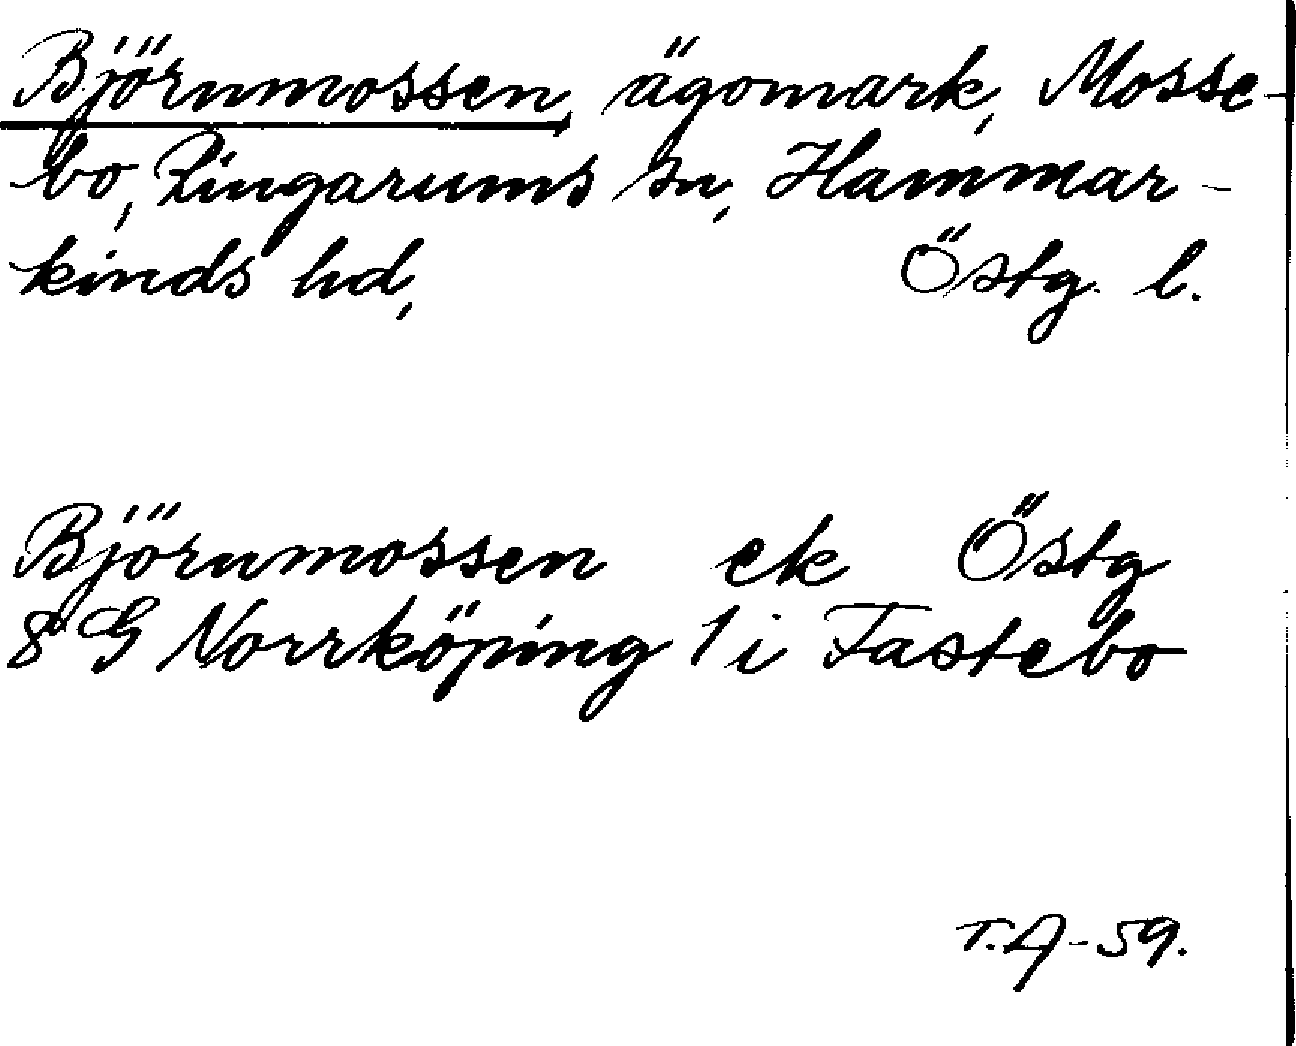 Björnmossen, ägomark, Mosse-
bo, Ringarums sn, Hammar-
kinds hd, Östg. l.
Björnmossen ek Östg
8 G Norrköping 1 i Fastebo
T.A-59.